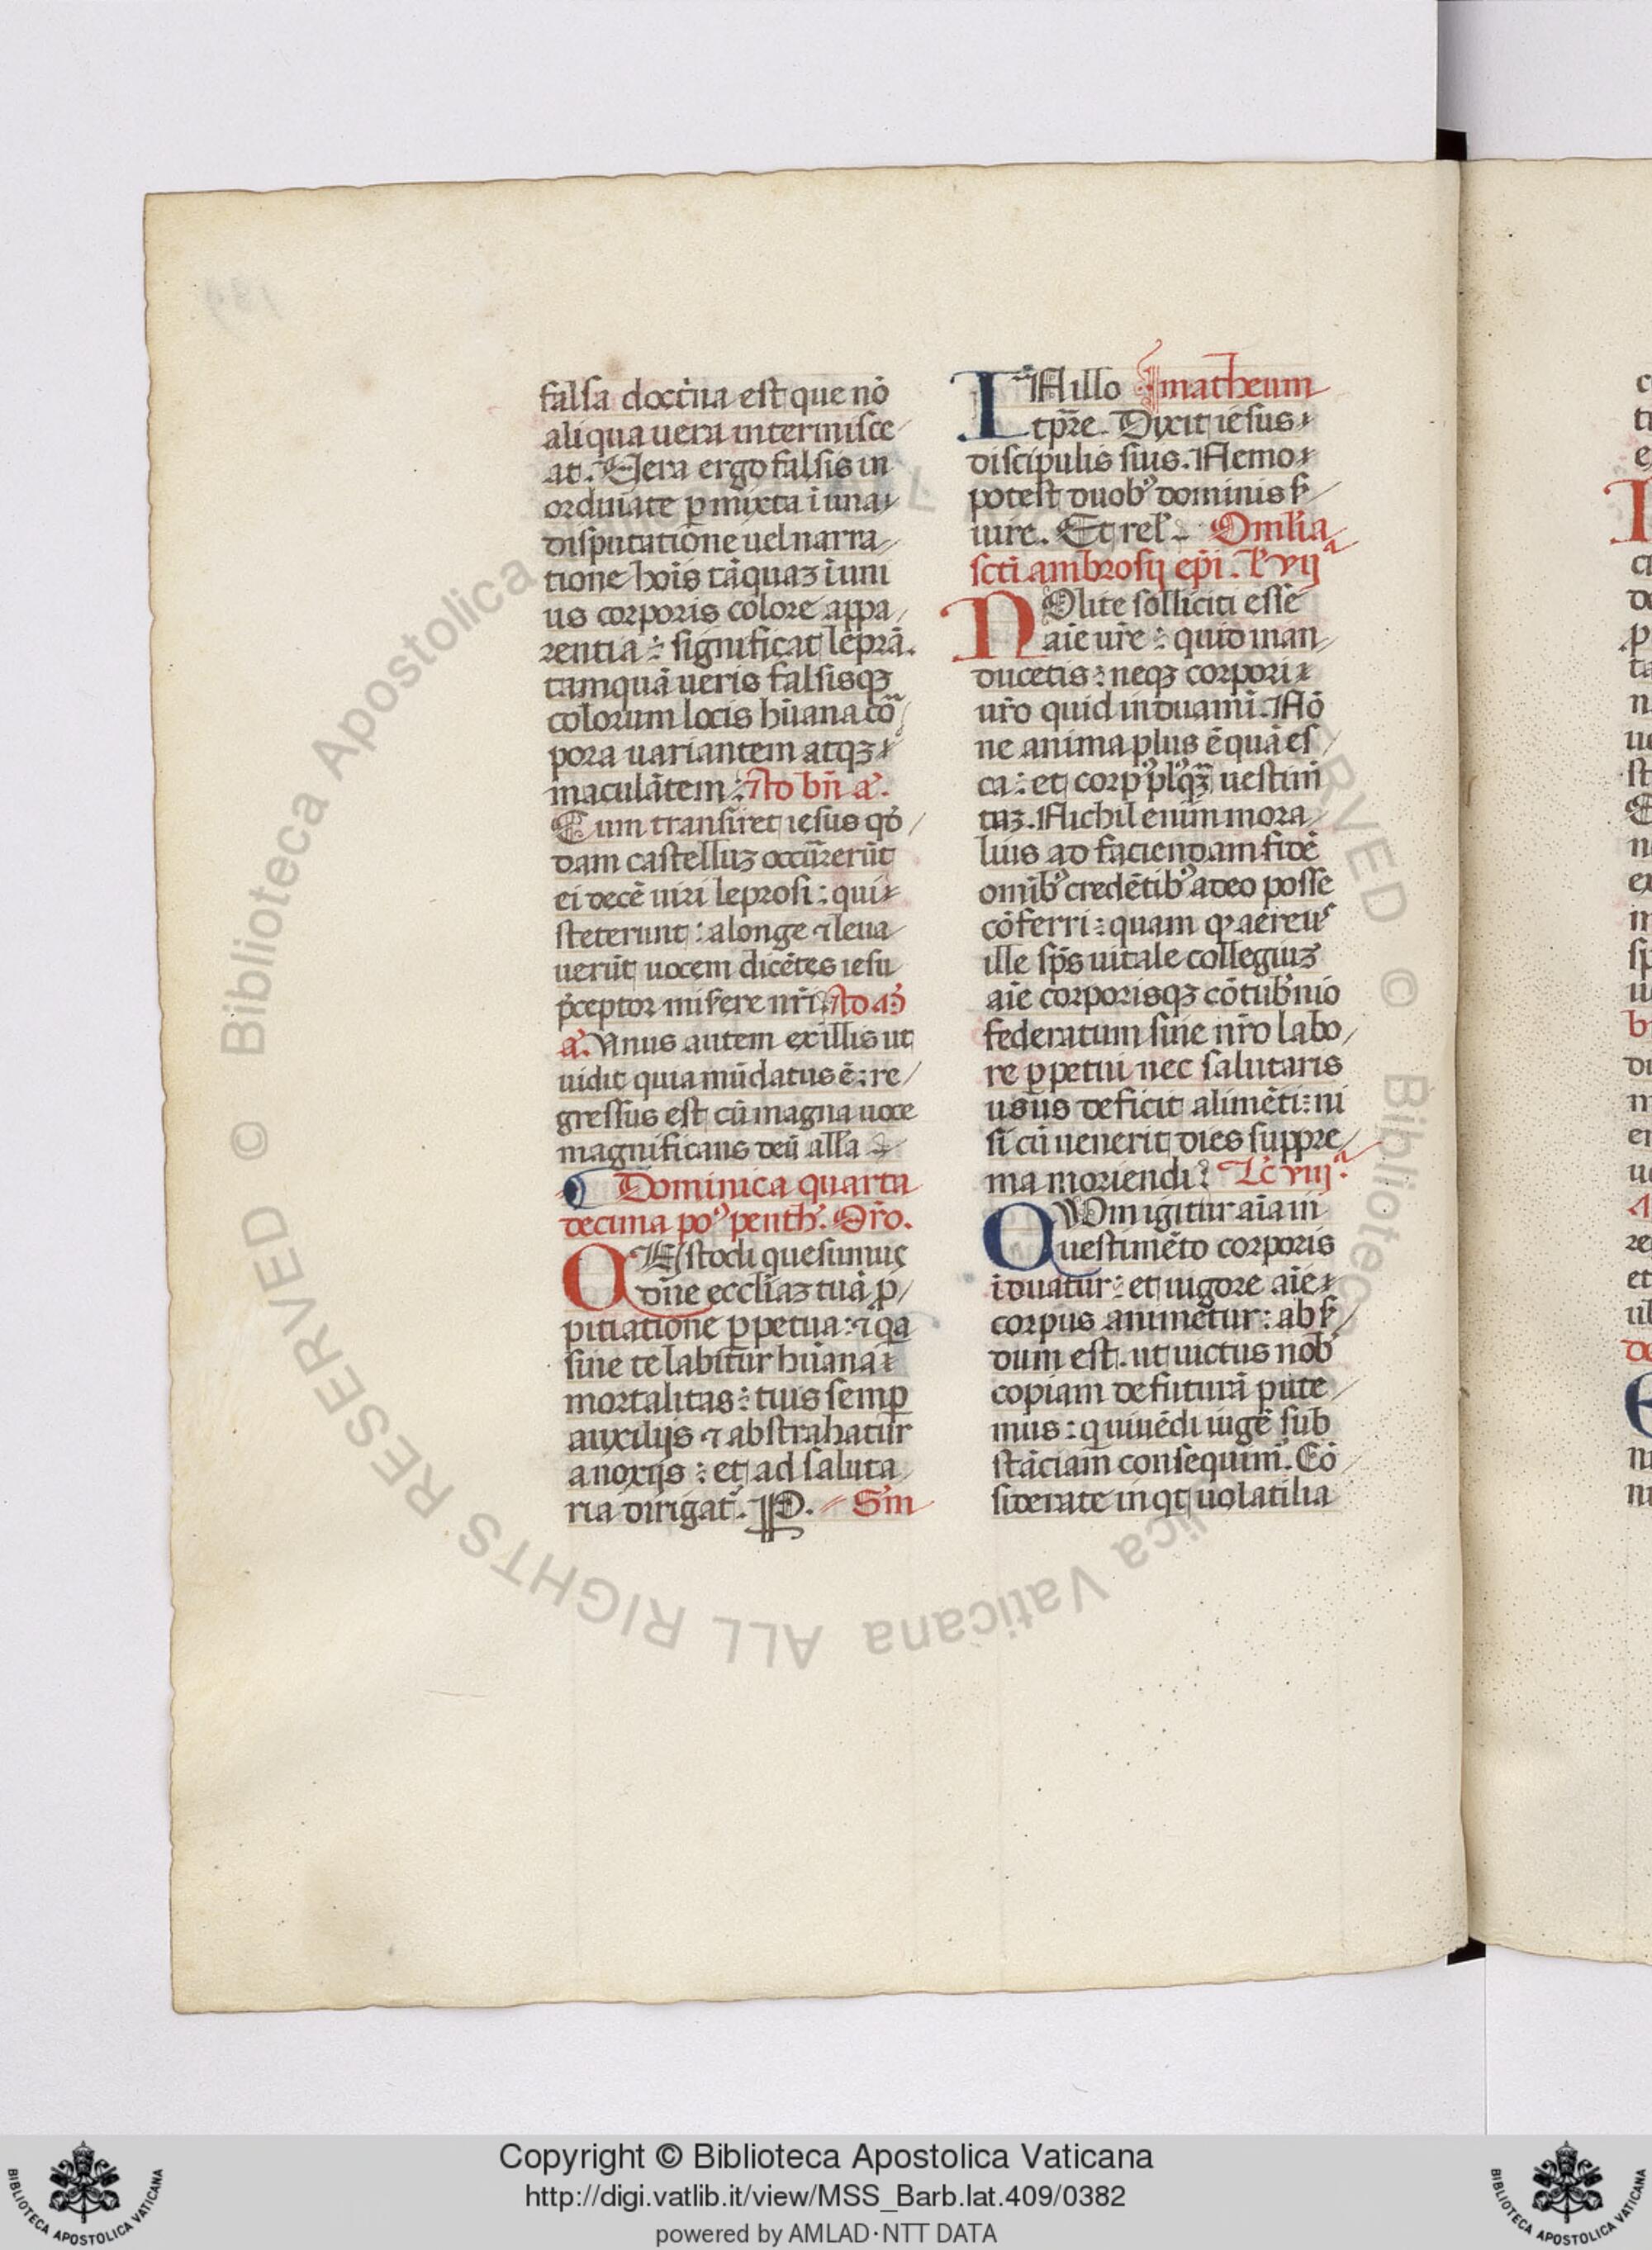 falsa doctͥna est que nō
aliqua uera intermisce
at. Uera ergo falsis in
ordinate ꝑmixta ī una
disputatione uel narra
tione hoīs tāquaꝫ ī uni
us corporis colore appa
rentia : significat leprā.
tamquā ueris falsisqꝫ
colorum locis hūana cō
pora uariantem atqꝫ
maculātem : Ad bn̄ a.
Cum transiret iesus qͦ
dam castelluꝫ occūrerūt
ei decē uiri leprosi : qui
steterunt : alonge ⁊ leua
uerūt uocem dicētes iesu
p̄ceptor miẜere nr̄i. Ad
a. Vnus autem ex illis ut
uidit quia mūdatus ē : re
gressus est cū magna uoce
magnificans deū alla
Dominica quarta
decima poꝰ penth̄. Or̄o.
CUstodi quesumus
dn̄e eccl̄iaꝫ tuā ꝓ
pitiatione ꝑpetua : ⁊ qͣ
sine te labitur hūana
mortalitas : tuis semꝑ
auxilijs ⁊ abstrahatur
a noxijs : et ad saluta
ria dirigat̄. P. Sm̄
IN illo matheum
tp̄re. Dixit iesus
discipulis suis. Nemo
potest duobꝰ dominis ẜ
uire. Et rel̄. Omel̄ia
sc̄ti ambrosij ep̄i. L̄ vijᵃ
NOlite solliciti esse
aīe ur̄e : quid man
ducetis : neqꝫ corpori
ur̄o quid induamī. Nō
ne anima plus ē quā es
ca : et corpꝰ plꝰqꝫ̄ uestim̄
tuꝫ. Nichil enim mora
lius ad faciendam fidē
omībꝰ credētibꝰ a deo posse
cōferri : quam ꝙ aereuˢ
ille sp̄s uitale collegiuꝫ
aīe corporisqꝫ cōtub̄nio
federatum sine nr̄o labo
re ꝑpetui nec salutaris
usus deficit alimēti : ni
si cū uenerit dies suppre
ma moriendi. Lc̄ viijᵃ.
QUom igitur aīa in
uestimēto corporis
iduatur : et uigore aīe
corpus animetur : abẜ
dum est. ut uictus nob̄
copiam defuturā pute
mus : q̄ uiuēdi iugē sub
stāciam consequim̄. Cō
siderate inqͥt uolatilia
Copyright © Biblioteca Apostolica Vaticana
http://digi.vatlib.it/view/MSS_Barb.lat.409/0382
powered by AMLAD·NTT DATA